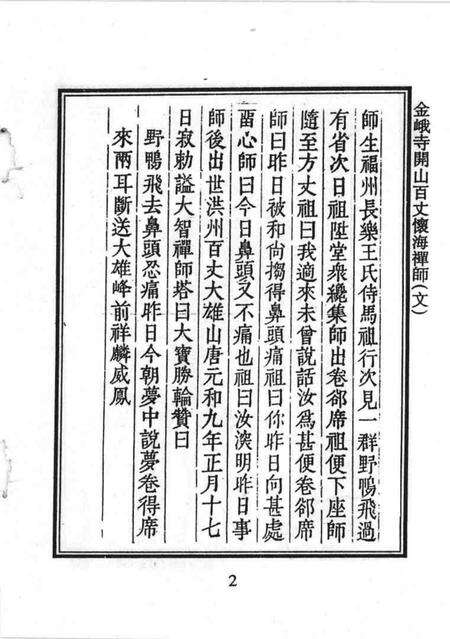 金峨寺開山百丈懷海禪師(文)
師生福州長樂王氏侍馬祖行次見一群野鴨飛過
有省次日祖陞堂衆纔集師出卷郤席祖便下座師
隨至方丈祖曰我適來未曾說話汝爲甚便卷郤席
師曰昨日被和尚搊得鼻頭痛祖曰你昨日向甚處
畱心師曰今日鼻頭又不痛也祖曰汝湥明昨日事
師後出世洪州百丈大雄山唐元和九年正月十七
日寂勅謚大智禪師塔曰大寶勝輪贊曰
野鴨飛去鼻頭忍痛昨日今朝夢中說夢卷得席
來兩耳斷送大雄峰前祥麟威鳳
2